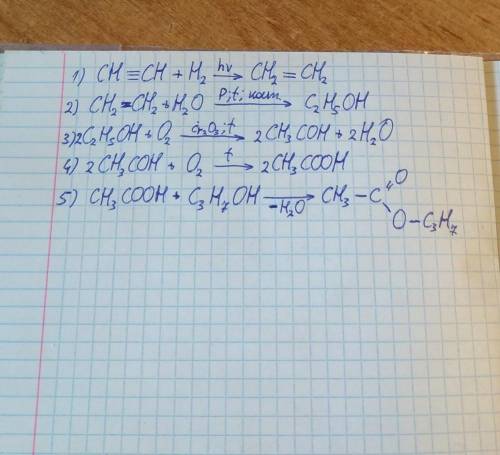 1) CH≡CH + H₂ —hν→ CH₂=CH₂
2) CH₂=CH₂ + H₂O —P; t; кат.→ C₂H₅OH
3) 2C₂H₅OH + O₂ —Cr₂O₃; t→ 2CH₃COH + 2H₂O
4) 2CH₃COH + O₂ —t→ 2CH₃COOH
5) CH₃COOH + C₃H₇OH —-H₂O→ CH₃-C O
O-C₃H₇